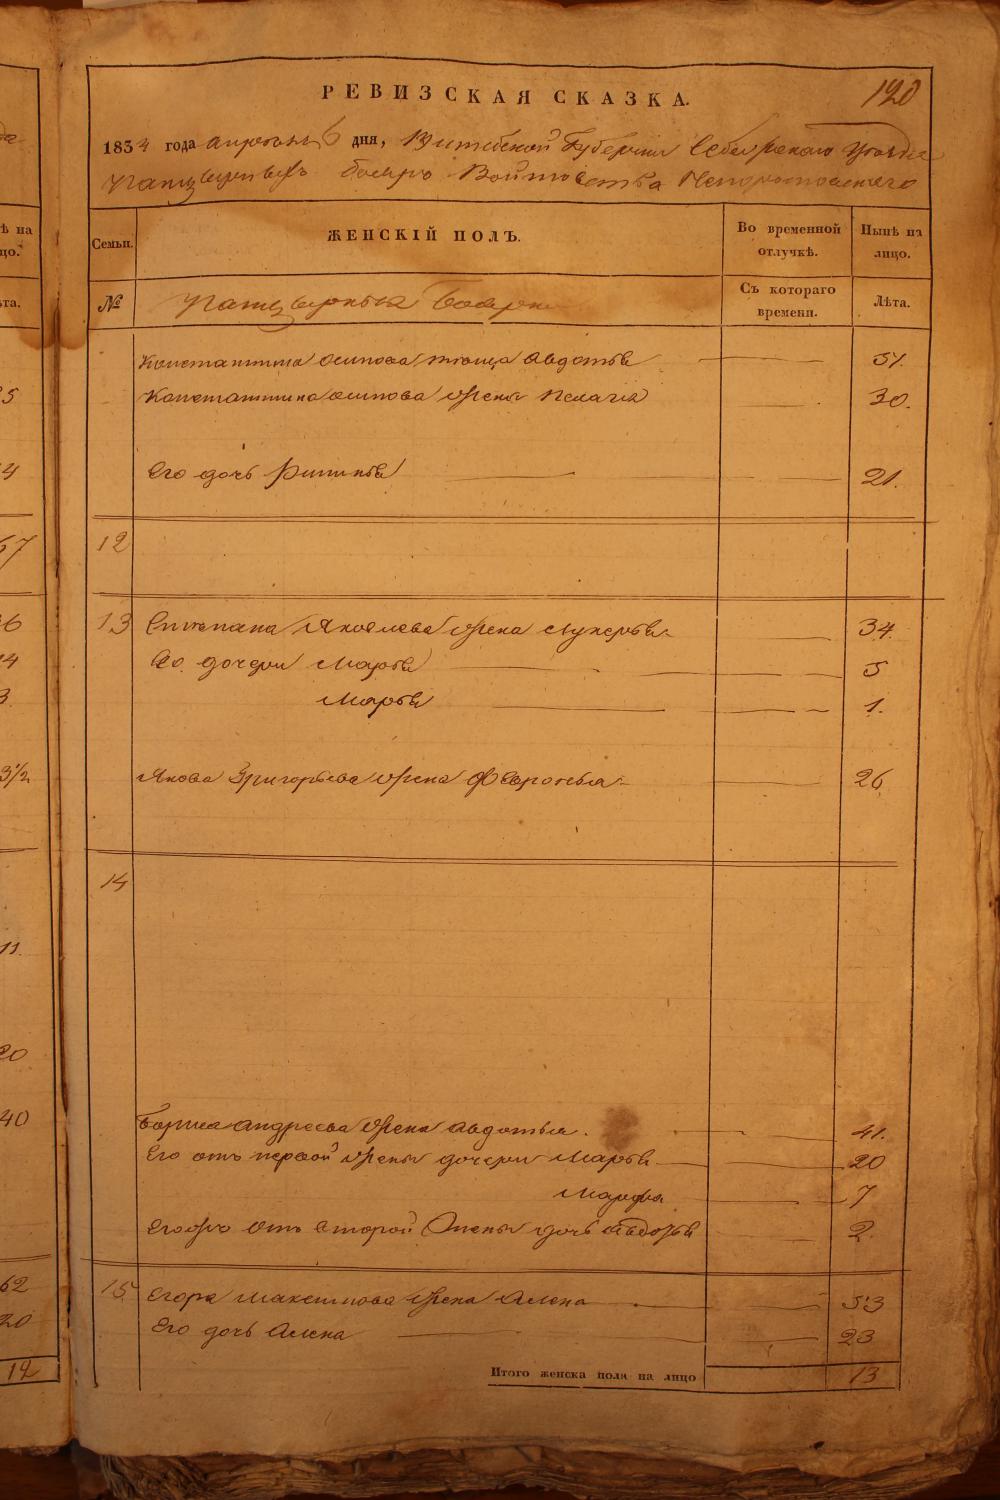 120
РЕВИЗСКАЯ СКАЗКА.
1834 года апреля 6 дня, Витебской Губернии Себежскаго Уезда
Панцырныхъ бояръ Войтовства
Семьи. ЖЕНСКІЙ ПОЛЪ. Во временной отлучкѣ. Нынѣ на лицо.
№ Панцырныя Бояры Съ котораго времени. Лѣта.
Константина осипова теща Авдотья 51.
Константина осипова жена Пелагия 30.
Его дочь 21.
12
13 Степана Яковлева жена Лукерья 34
Его дочери Марья 5
Марья 1.
Якова Григорьева жена Февронья 26
14
Бориса андреева жена авдотья 41.
Его отъ первой жены дочери Марья 20
Марфа 7
Его же отъ второй жены дочь 2.
15 Егора максимова жена Алена 53
Его дочь Алена 23
Итого женска пола на лицо 13
ѣ на
цо.
ѣта.
5
4
57
6
14
3
3½
11
20
40
62
20
12